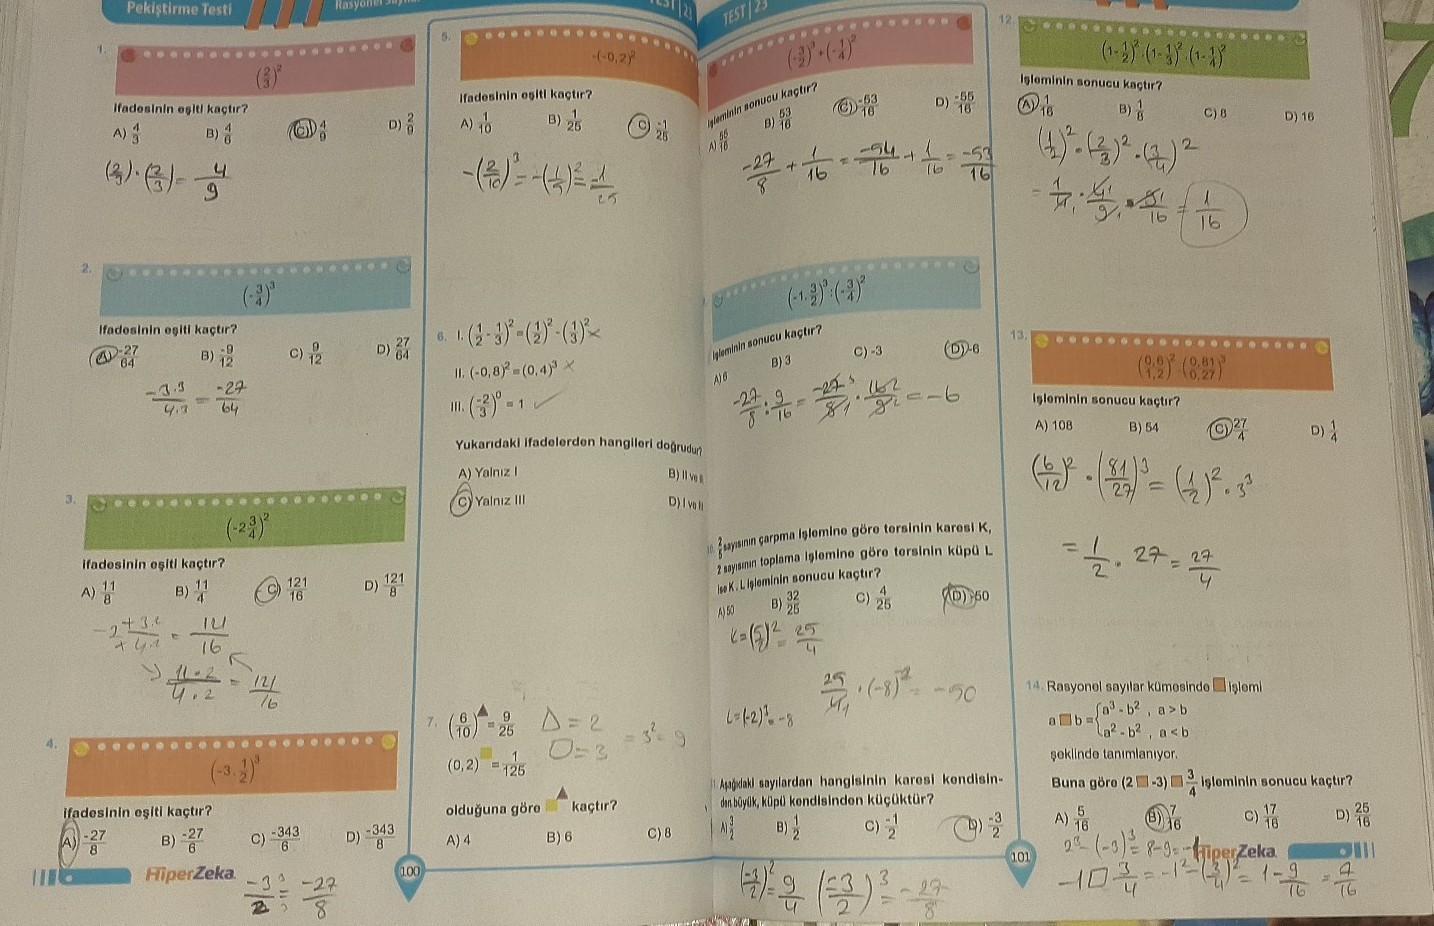 Pekiştirme Testi
1.
(2/3)²
ifadesinin eşiti kaçtır?
A) 4/3 B) 4/6 C) 4/9 D) 2/9
(2/3)·(2/3) = 4/9
2.
(-3/4)³
ifadesinin eşiti kaçtır?
A) -27/64 B) -9/12 C) 9/12 D) 27/64
-3·3/4·3 = -27/64
3.
(-2 3/4)²
ifadesinin eşiti kaçtır?
A) 11/8 B) 11/4 C) 121/16 D) 121/8
= 121/16
11·2/4·2 = 121/16
4.
(-3·1/2)³
ifadesinin eşiti kaçtır?
A) -27/8 B) -27/6 C) -343/6 D) -343/8
HiperZeka
-3³/2³ = -27/8
5.
-(-0,2)²
ifadesinin eşiti kaçtır?
A) 1/10 B) 1/25 C) -1/25
-(2/10)³ = -(1/5)² = -1/25
6. I. (1/2 - 1/3)² = (1/2)² - (1/3)² x
II. (-0,8)² = (0,4)³ x
III. (-2/3)⁰ = 1 ✓
Yukarıdaki ifadelerden hangileri doğrudur?
A) Yalnız I
C) Yalnız III
7. (6/10)▲ = 9/25 △ = 2
(0,2)■ = 1/125 □ = 3 = 3² = 9
olduğuna göre ■▲ kaçtır?
A) 4 B) 6 C) 8
100
TEST | 23
(-3/2)³ + (-1/4)²
işleminin sonucu kaçtır?
A) 55/16 B) 53/16 C) -53/16 D) -55/16
-27/8 + 1/16 = -54/16 + 1/16 = -53/16
(-1·3/2)³ : (-3/4)²
işleminin sonucu kaçtır?
A) 6 B) 3 C) -3 D) -6
-27/8 : 9/16 = -27/8 · 16/9 = -6
2/5 sayısının çarpma işlemine göre tersinin karesi K,
2 sayısının toplama işlemine göre tersinin küpü L
ise K . L işleminin sonucu kaçtır?
A) 50 B) 32/25 C) 4/25 D) -50
K = (5/2)² = 25/4
25/4 · (-8) = -50
L = (-2)³ = -8
Aşağıdaki sayılardan hangisinin karesi kendisin-
den büyük, küpü kendisinden küçüktür?
A) 3/2 B) 1/2 C) -1/2 D) -3/2
(-3/2)² = 9/4 (-3/2)³ = -27/8
12.
(1-1/2)²·(1-1/3)²·(1-1/4)²
işleminin sonucu kaçtır?
A) 1/16 B) 1/8 C) 8 D) 16
(1/2)² · (2/3)² · (3/4)²
= 1/4 · 4/9 · 9/16 = 1/16
13.
(0,6/1,2)²·(0,81/0,27)³
işleminin sonucu kaçtır?
A) 108 B) 54 C) 27/4 D) 1/4
(6/12)² · (81/27)³ = (1/2)² · 3³
= 1/2 · 27 = 27/4
14. Rasyonel sayılar kümesinde ■ işlemi
a ■ b = { a³ - b² , a > b
a² - b² , a < b
şeklinde tanımlanıyor.
Buna göre (2 ■ -3) ■ 3/4 işleminin sonucu kaçtır?
A) 5/16 B) 7/16 C) 17/16 D) 25/16
2³ - (-3)³ = 8 - 9 = -1
HiperZeka
-1 □ 3/4 = -1² - (3/4)² = 1 - 9/16 = 7/16
101